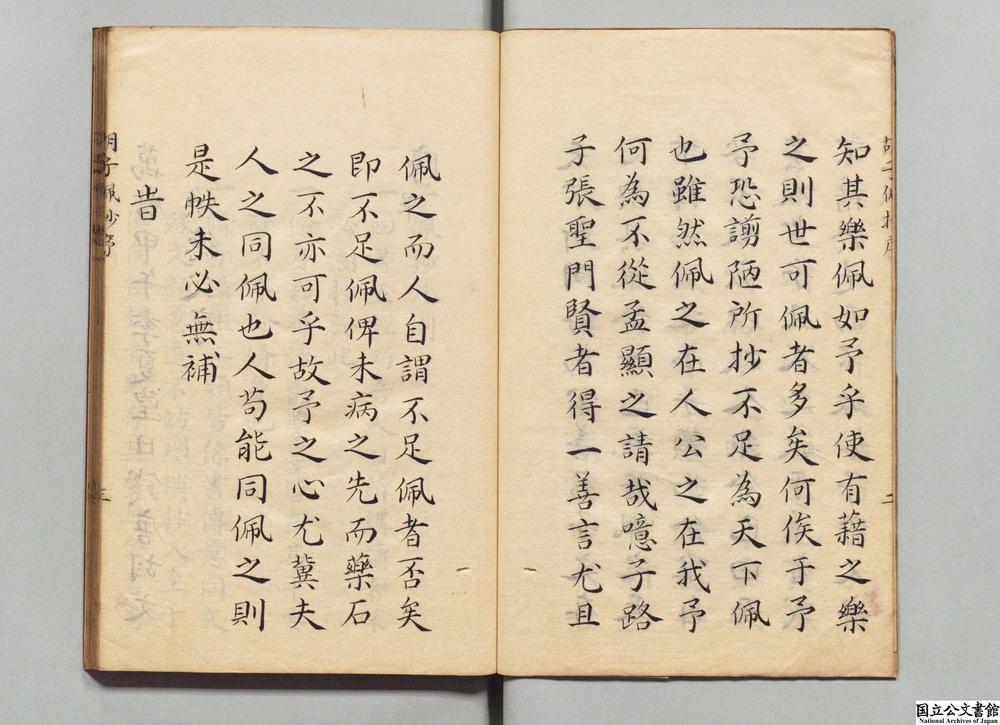 知其樂佩如予乎使有藉之樂
之則世可佩者多矣何俟于予
予恐謭陋所抄不足為天下佩
也雖然佩之在人公之在我予
何為不從孟顯之請哉噫子路
子張聖門賢者得一善言尤且
佩之而人自謂不足佩者否矣
即不足佩俾未病之先而藥石
之不亦可乎故予之心尤冀夫
人之同佩也人苟能同佩之則
是帙未必無補
旹
胡子佩抄序
二
三
国立公文書館
National Archives of Japan